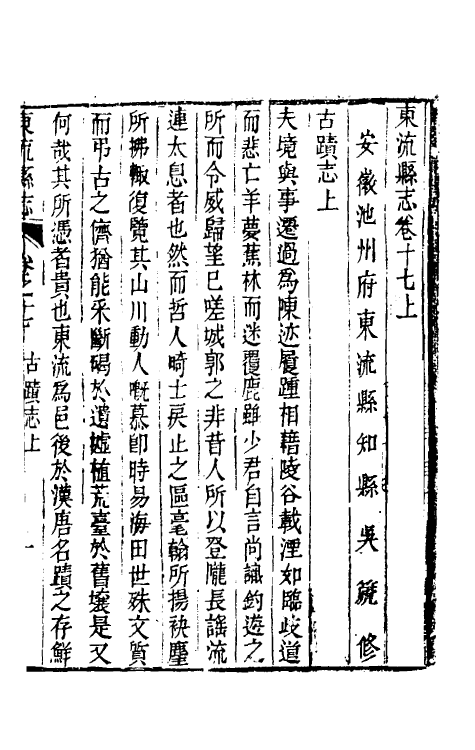 東流縣志卷十七上
安徽池州府東流縣知縣吳篪修
古蹟志上
夫境與事遷過為陳迹履踵相藉陵谷載湮如臨歧道
而悲亡羊夢蕉林而迷覆鹿雖少君自言尚識釣遊之
所而令威歸望已嗟城郭之非昔人所以登隴長謠流
連太息者也然而哲人畸士戾止之區毫翰所揚袂塵
所拂輙復覽其山川動人嘅慕卽時易海田世殊文質
而弔古之儕猶能采斷碣於遺墟植荒臺於舊壤是又
何哉其所憑者貴也東流為邑後於漢唐名蹟之存鮮
東流縣志 卷之十七 古蹟志上 一